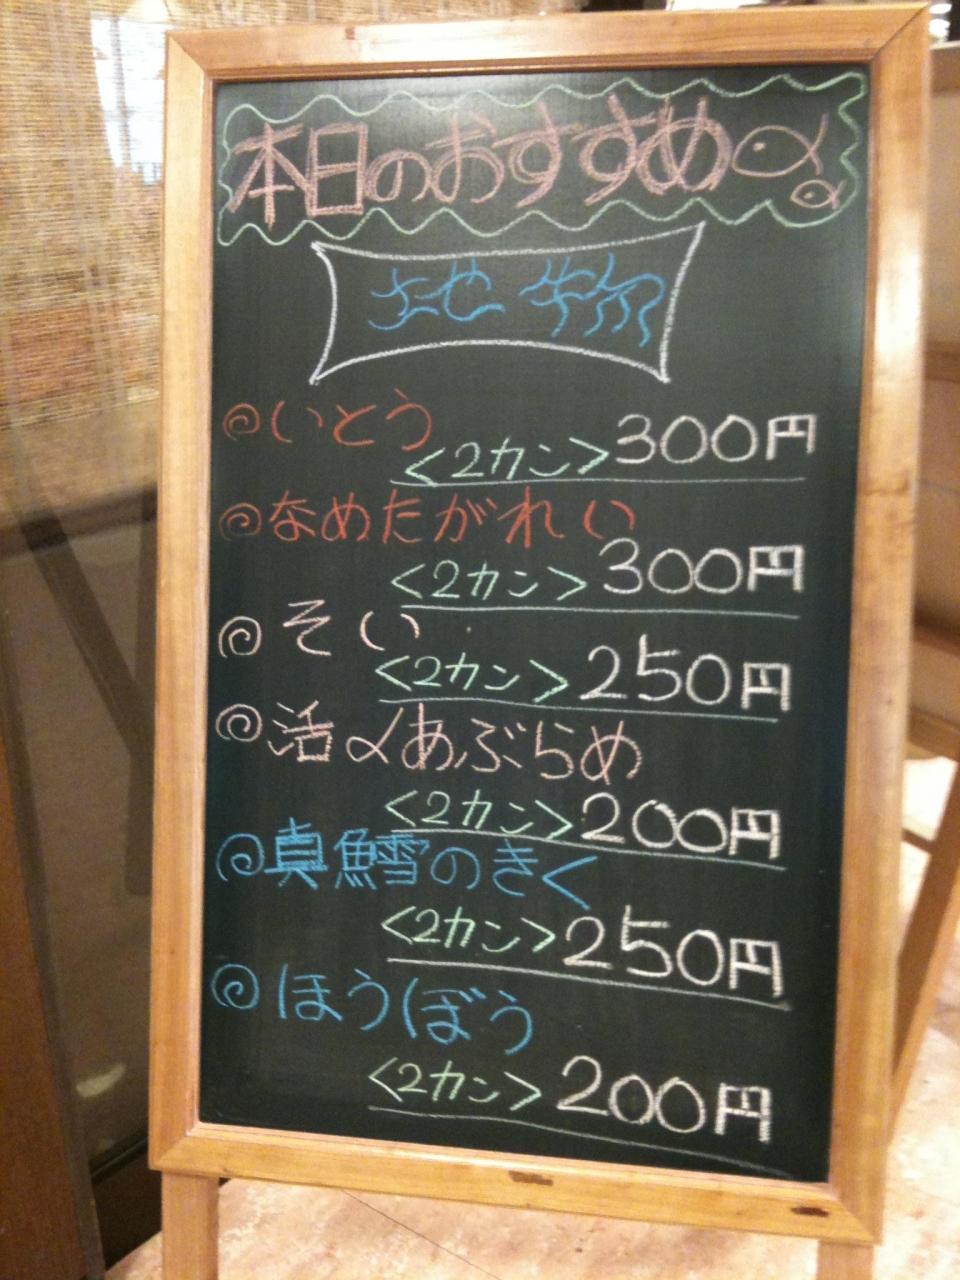 本日のおすすめ
地物
いとう
<2カン> 300円
なめたがれい
<2カン> 300円
そい
<2カン> 250円
活〆あぶらめ
<2カン> 200円
真鱈のきく
<2カン> 250円
ほうぼう
<2カン> 200円